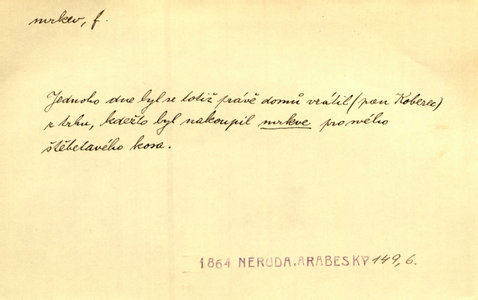 mrkev, f.
Jednoho dne byl se totiž právě domů vrátil (pan Koberec)
z trhu, kdežto byl nakoupil mrkve pro svého
štěbetavého kosa.
1864 NERUDA, ARABESKY 149, 6.